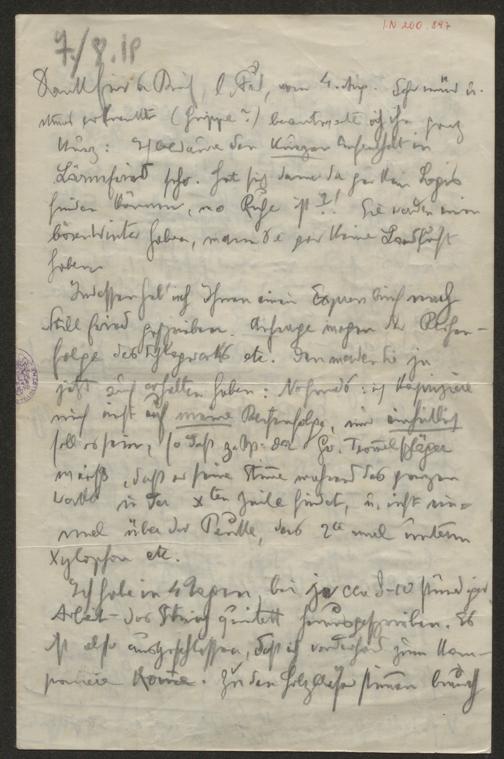 I.N. 200.897
7/8.18
Dank für den Brief, l. Frl., vom 4. Aug. Sehr müd u.
erkrankt (Grippe?) beantworte ich ihn ganz
kurz: Ich bedaure den kurzen Aufenthalt in
sehr. Hat sich denn da gar kein Logis
finden können, wo Ruhe ist?! Sie werden einen
bösen Winter haben, wenn Sie gar keine Landluft
haben.
Indessen hab' ich Ihnen einen Expressbrief nach
Stillfried geschrieben. Anfrage wegen der Reihen-
folge des Schlagwerks etc. Den werden Sie ja
jetzt auch erhalten haben: Nochmals: ich kapriziere
mich nicht auf meine Reihenfolge, nur einheitlich
soll es sein, so daß z. Bp. der Gr. Trommelschläger
weiß, daß er seine Stimme während des ganzen
in der xten Zeile findet, u. nicht ein-
mal über der Pauke, das 2te mal unterm
Xylophon etc.
Ich habe in 4 Tagen, bei je cca 8-10 stündiger
Arbeit - das Streichquintett herausgeschrieben. Es
ist also ausgeschlossen, daß ich vorderhand zum Kom-
ponieren komme. Zu den Holzbläserstimmen brauch